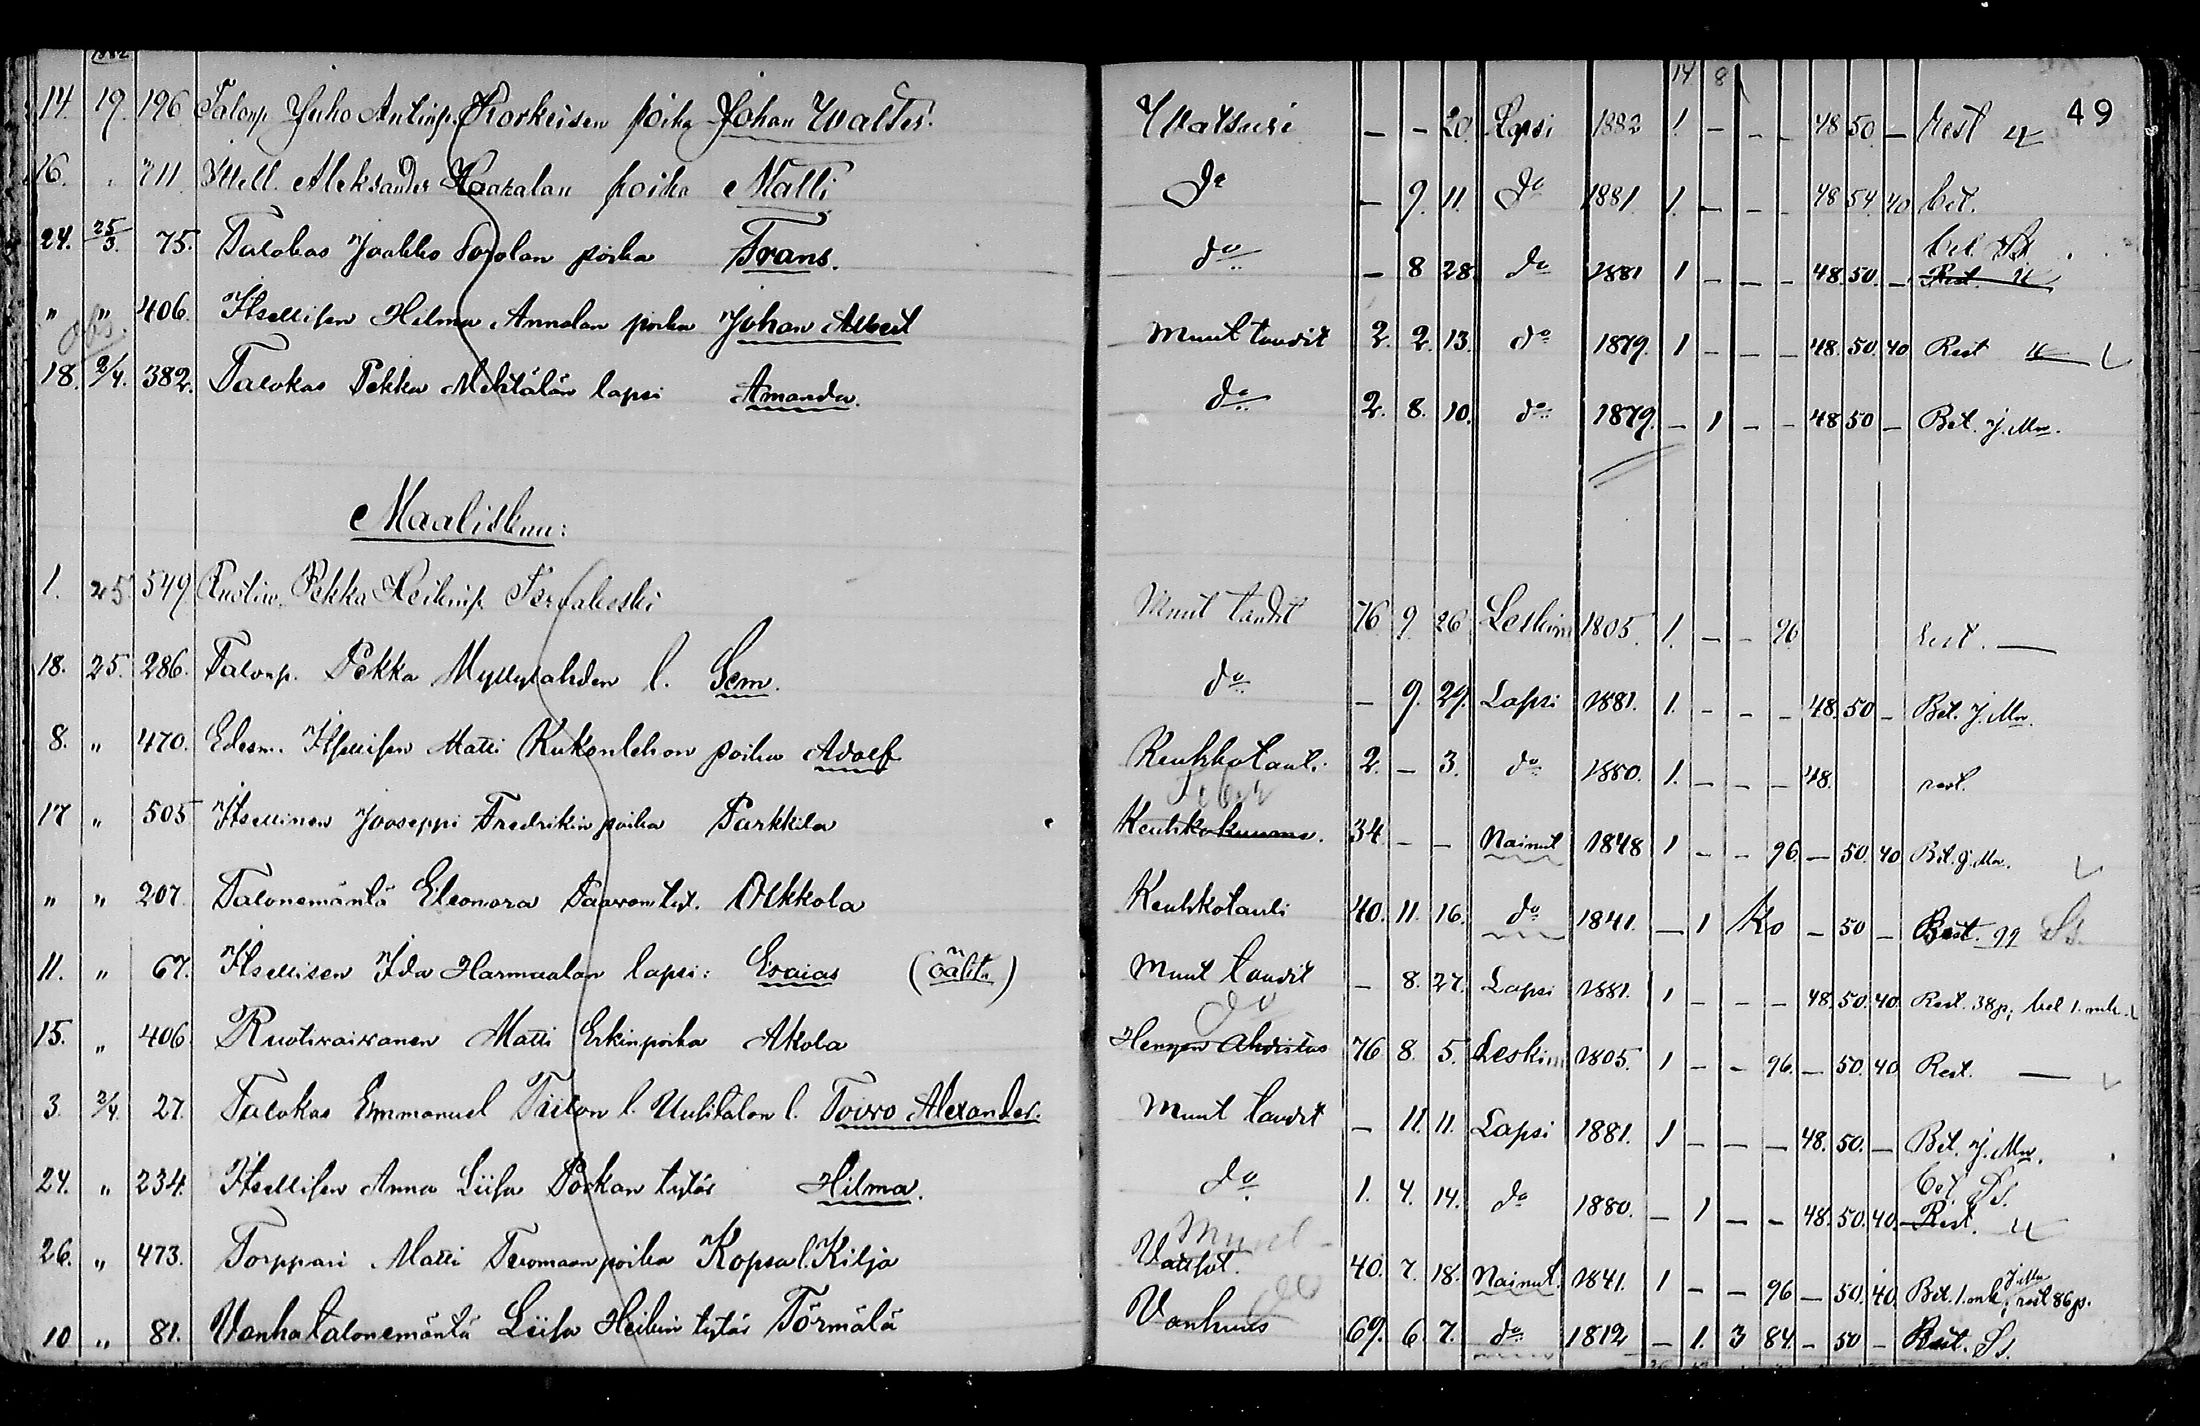 49
14 8
14. 19. 196 Talonp. Juho Antinp. Korkeisen poika Johan Walter. Watsuri — — 20. Lapsi 1882 1. — — — 48 50 — Rest
16. " 711 Itsell. Aleksander Kaakalan poika Matti Do — 9. 11. Do 1881. 1. — — — 48 54. 40 bet.
24. 25/3. 75. Talokas Jaakko Torolan poika Frans. do — 8 28. do 1881 1 — — — 48. 50. — Rest. bet.
" " 406. Itsellisen Hilma Annalan poika Johan Albert Muut taudit 2. 2. 13. do 1879. 1 — — — 48. 50. 40 Rest
obs.
18. 2/4. 382. Talokas Pekka Mehtälän lapsi Amanda. do 2. 8. 10. do 1879. — 1 — — 48. 50 — Bet. J. Mn.
Maaliskuu:
1. 25. 549 Ruotiv. Pekka Heikinp. Tervakoski Muut taudit 76 9 26 Leskim 1805. 1. — — 96 Rest. —
18. 25. 286. Talonp. Pekka Myllylahden l. Sem. do — 9. 29. Lapsi 1881. 1. — — — 48. 50 — Bet. J. Mn.
8. " 470. Edesm. Itsellisen Matti Kukonlehon poika Adolf Keuhkotauti. 2. — 3. do 1880. 1. — — — 48. rest.
17 " 505 Itsellinen Jooseppi Fredrikin poika Parkkila Keuhkokuume. 34. — — Nainut 1848 1 — — 96 — 50. 40 Bet. J. Mn.
" " 207. Talonemäntä Eleonora Paavontyt. Olkkola Keuhkotauti 40. 11. 16. do 1841. — 1 Ko — 50 — Best.
11. " 67. Itsellisen Ida Harmaalan lapsi: Esaias Muut taudit — 8. 27. Lapsi 1881. 1 — — — 48. 50. 40. Rest. 38 p; bet 1. mk.
15. " 406 Ruotivaivanen Matti Erkinpoika Akola Hengen Ahdistus do 76 8. 5. Leskim 1805. 1 — — 96. — 50. 40 Rest. —
3. 2/4. 27. Talokas Emmanuel Tiiton l. Uulitalon l. Toivo Alexander. Muut taudit — 11. 11. Lapsi 1881. 1 — — — 48. 50. — Bet. J. Mn.
24. " 234. Itsellisen Anna Liisa Porkan tytär Hilma. do 1. 4. 14. do 1880. — 1 — — 48. 50. 40. Rest. bet.
26. " 473. Torppari Matti Tuomaanpoika Kopsa l. Kilja Vattsut. 40. 7. 18. Nainut. 1841. 1 — — 96 — 50. 40. Bet. 1. mk, rest 86 p. J. Mn
10 " 81. Vanha talonemäntä Liisa Heikin tytär Törmälä Vanhuus 69. 6. 7. do 1812 — 1. 3 84. — 50 — Rest.